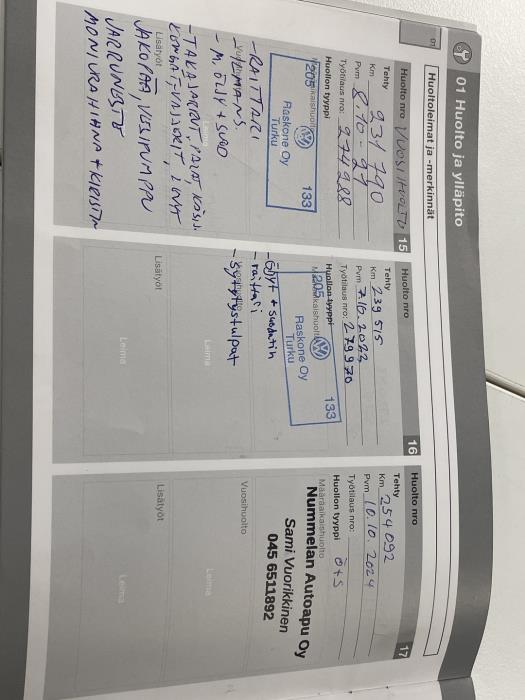 01 Huolto ja ylläpito
Huoltoleimat ja -merkinnät
01
Huolto nro VUOSIHUOLTO 15
Tehty
Km 231 790
Pvm 8.10-21
Työtilaus nro: 274288
Huollon tyyppi
205
133
Raskone Oy
Turku
-RAITTARI
- M. ÖLJY + SUOD
-TAKAJARRUT, PALAT, KÄSIJ.
Lisätyöt
JAKOPÄÄ, VESIPUMPPU
JARRUNESTE
MONIURAHIHNA + KIRISTIN
Huolto nro 16
Tehty
Km 239 515
Pvm 7.10.2022
Työtilaus nro: 279970
Huollon tyyppi
Määräaikaishuolto
205
133
Raskone Oy
Turku
-Öljyt + suodatin
-raittari
Vuosihuolto
-sytytystulpat
Leima
Lisätyöt
Leima
Huolto nro 17
Tehty
Km 254 092
Pvm 10.10.2024
Työtilaus nro:
Huollon tyyppi Ö+S
Määräaikaishuolto
Nummelan Autoapu Oy
Sami Vuorikkinen
045 6511892
Vuosihuolto
Leima
Lisätyöt
Leima